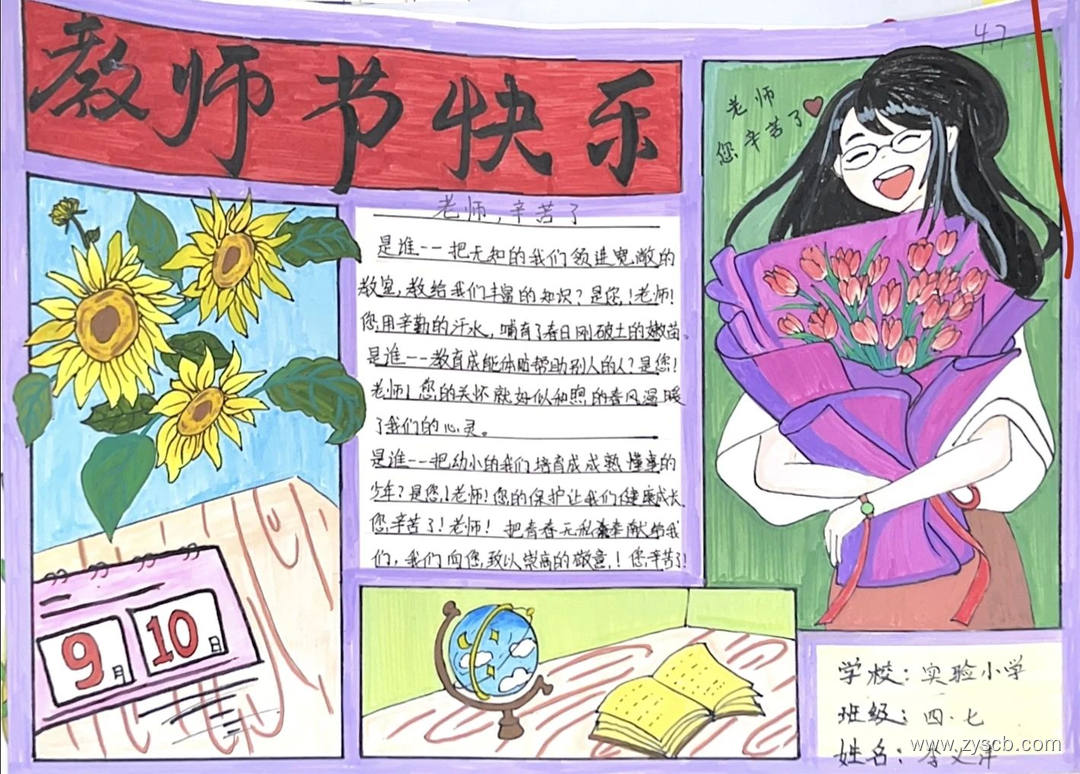 教师节快乐
47
老师
您辛苦了
老师,辛苦了
是谁——把无知的我们领进宽敞的
教室,教给我们丰富的知识?是您!老师!
您用辛勤的汗水,哺育了春日刚破土的嫩苗。
是谁——教育成能体贴帮助别人的人?是您!
老师!您的关怀就好似和煦的春风温暖
了我们的心灵。
是谁——把幼小的我们培育成成熟懂事的
少年?是您!老师!您的保护让我们健康成长
您辛苦了!老师!把青春无私奉献给我
们,我们向您致以崇高的敬意!您辛苦了!
9月
10日
学校:实验小学
班级:四·七
姓名:李
www.zyscb.com